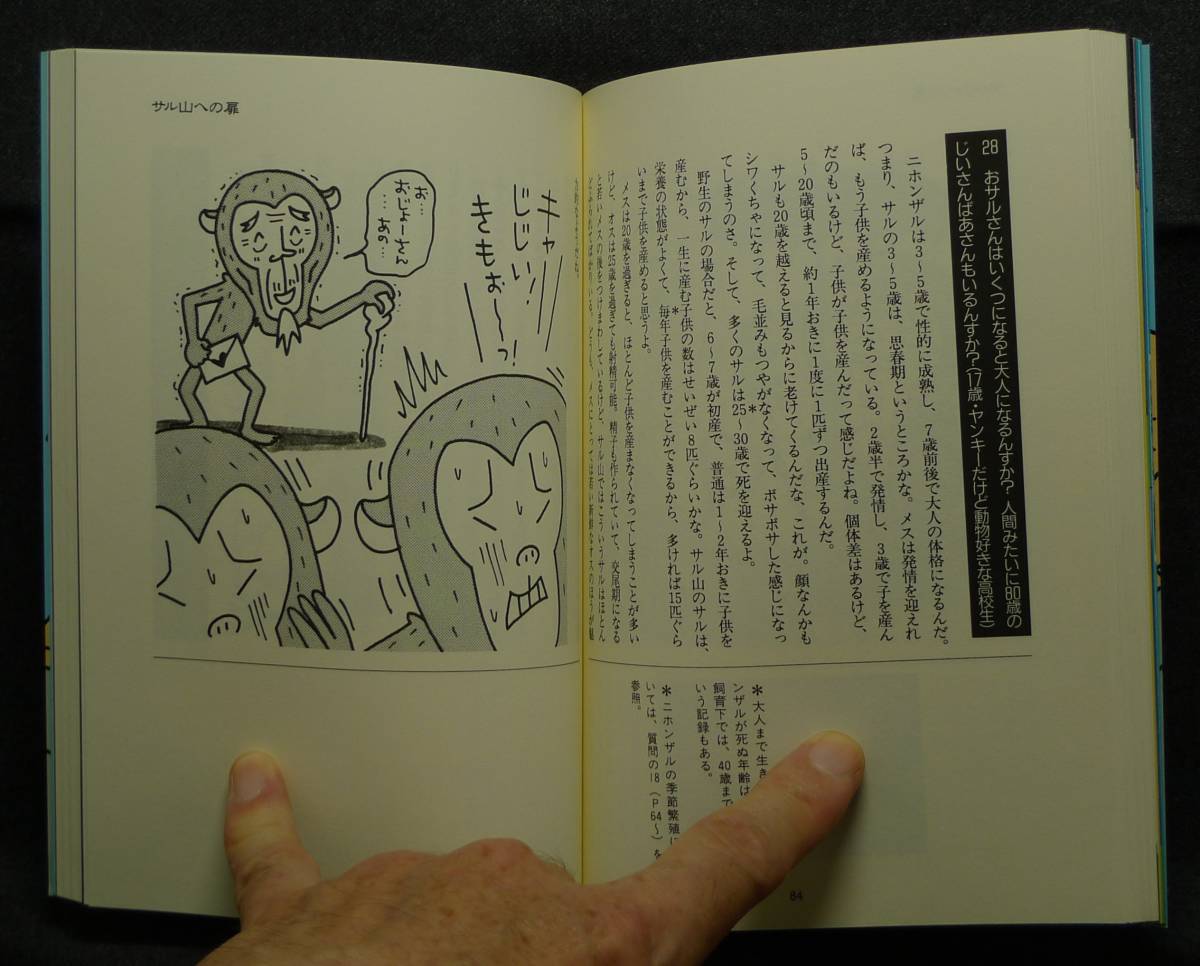 28　おサルさんはいくつになると大人になるんすか？ 人間みたいに80歳の
じいさんばあさんもいるんすか？（17歳・ヤンキーだけど動物好きな高校生）
ニホンザルは3〜5歳で性的に成熟し、7歳前後で大人の体格になるんだ。
つまり、サルの3〜5歳は、思春期というところかな。メスは発情を迎えれ
ば、もう子供を産めるようになっている。2歳半で発情し、3歳で子を産ん
だのもいるけど、子供が子供を産んだって感じだよね。個体差はあるけど、
5〜20歳頃まで、約1年おきに1度に1匹ずつ出産するんだ。
サルも20歳を越えると見るからに老けてくるんだな、これが。顔なんかも
シワくちゃになって、毛並みもつやがなくなって、ボサボサした感じになっ
てしまうのさ。そして、多くのサルは25〜30歳で死を迎えるよ。＊
野生のサルの場合だと、6〜7歳が初産で、普通は1〜2年おきに子供を
産むから、一生に産む子供の数はせいぜい8匹ぐらいかな。サル山のサルは、
栄養の状態がよくて、毎年子供を産むことができるから、多ければ15匹ぐら＊
いまで子供を産めると思うよ。
メスは20歳を過ぎると、ほとんど子供を産まなくなってしまうことが多い
けど、オスは25歳を過ぎても射精可能。精子も作られていて、交尾期になる
と若いメスの後をつけまわしているけど、サル山ではこういうサルはほとん
どメスにとっては若い新鮮なオスのほうが魅
＊大人まで生き
ンザルが死ぬ年齢は
飼育下では、40歳まで
いう記録もある。
＊ニホンザルの季節繁殖に
いては、質問の18（P64〜）を
参照。
84
サル山への扉
キャ
じじい！
きもぉ〜っ！
お…
おじょーさん
…あの…